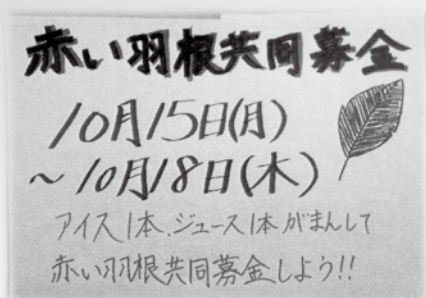 赤い羽根共同募金
10月15日(月)
～10月18日(木)
アイス1本、ジュース1本がまんして
赤い羽根共同募金しよう!!